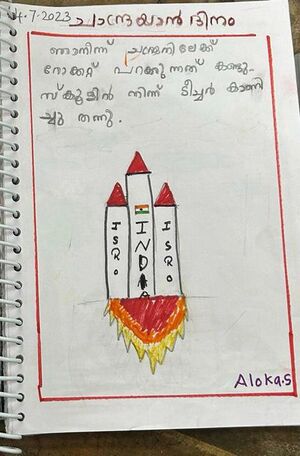 14.7.2023 ചാന്ദ്രയാൻ ദിനം
ഞാനിന്ന് ചന്ദ്രനിലേക്ക്
റോക്കറ്റ് പറക്കുന്നത് കണ്ടു.
സ്കൂളിൽ നിന്ന് ടീച്ചർ കാണി
ച്ചു തന്നു.
ISRO
INDIA
ISRO
Aloka.S